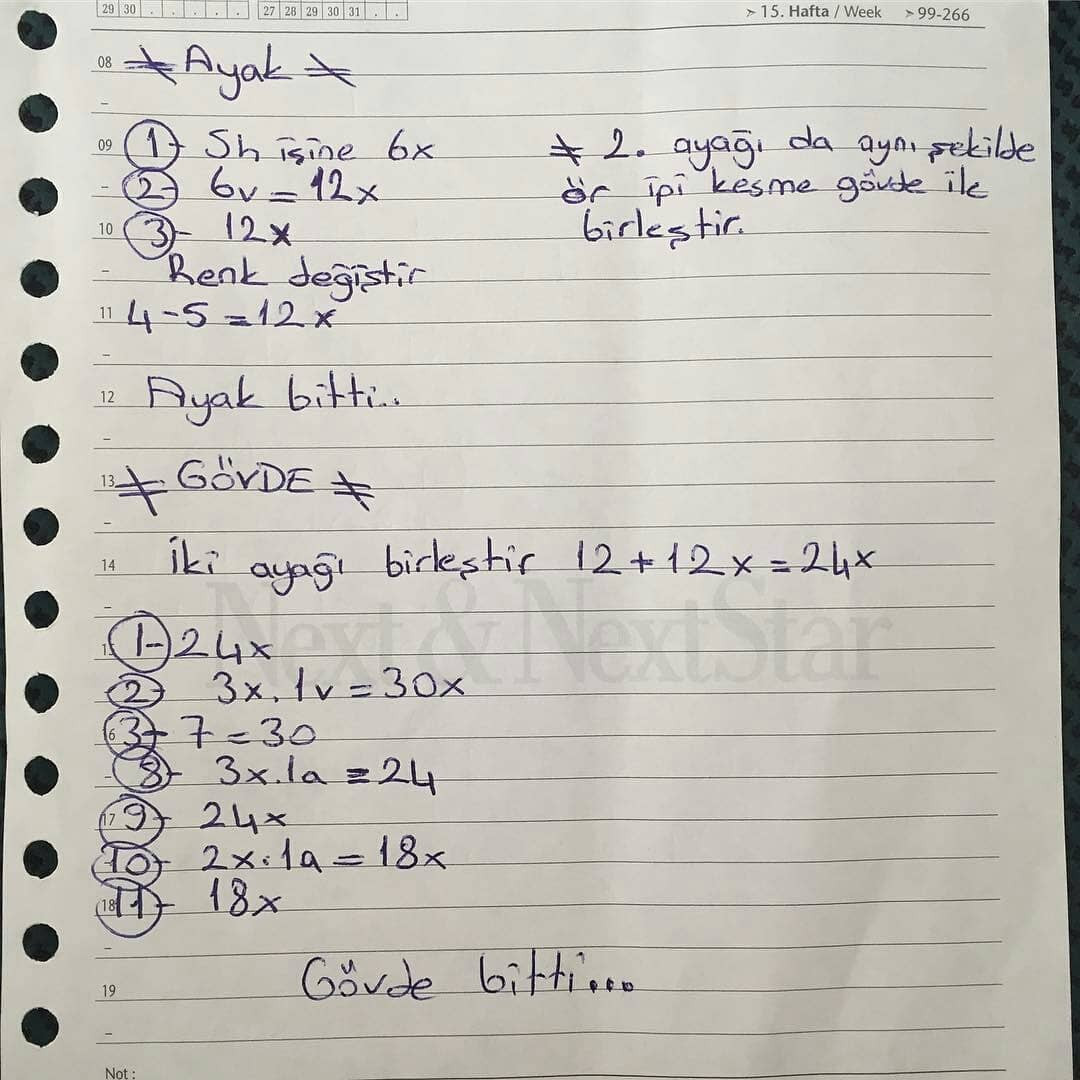 29 30 . . . . . 27 28 29 30 31 . .
➢ 15. Hafta / Week ➢ 99-266
08 * Ayak *
09 1- Sh işine 6x
2- 6v = 12x
10 3- 12x
Renk değiştir
11 4-5 = 12x
* 2. ayağı da aynı şekilde
ör ipi kesme gövde ile
birleştir.
12 Ayak bitti..
13 * GÖVDE *
14 İki ayağı birleştir 12+12x = 24x
Next & NextStar
1- 24x
2- 3x.1v = 30x
3- 7 = 30
8- 3x.1a = 24
17 9- 24x
10- 2x.1a = 18x
18 11- 18x
Gövde bitti...
19
Not :